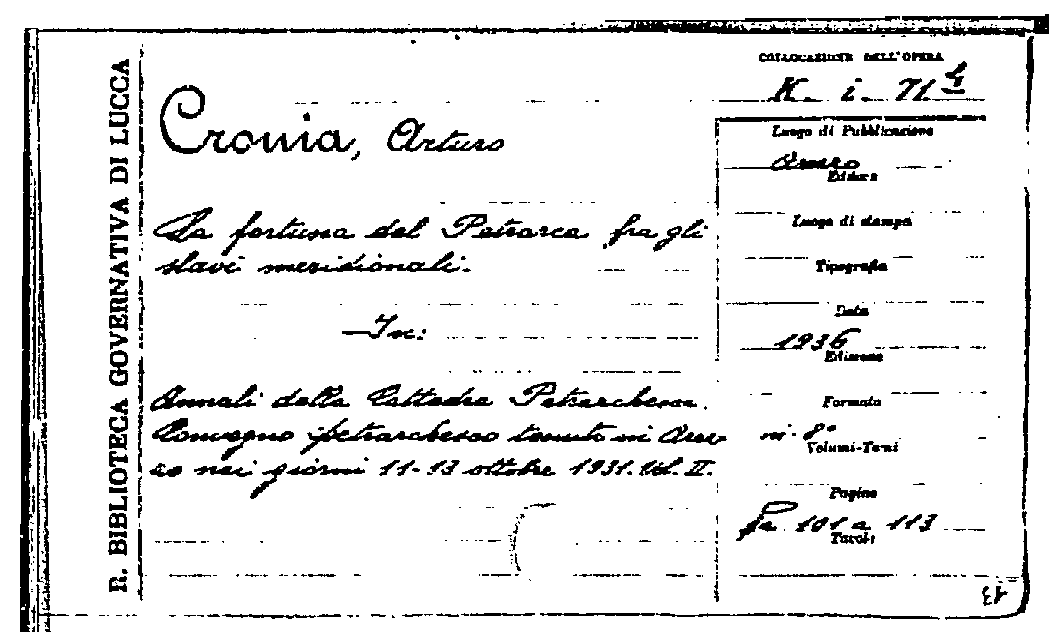 R. BIBLIOTECA GOVERNATIVA DI LUCCA
COLLOCAZIONE DELL'OPERA
K. i. 71
Cronia, Arturo
La fortuna del Petrarca fra gli
slavi meridionali.
In:
Annali della Cattedra Petrarchesca.
Convegno petrarchesco tenuto in Arez-
zo nei giorni 11-13 ottobre 1931. Vol. II.
Luogo di Pubblicazione
Arezzo
Editore
Luogo di stampa
Tipografia
Data
1936
Edizione
Formato
in-8°
Volumi-Tomi
Pagine
Da 101 a 113
Tavole